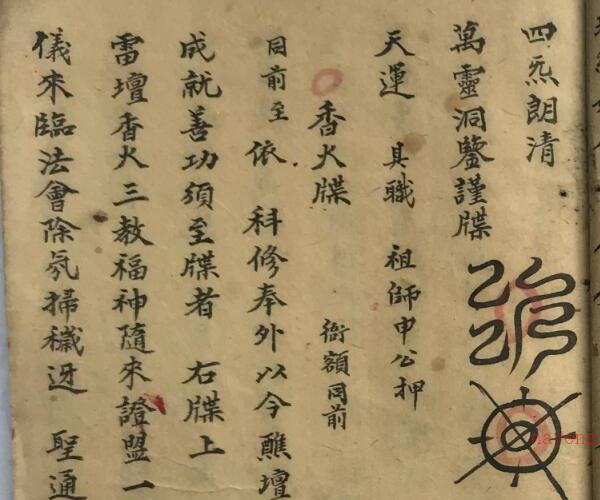 四炁朗清
萬靈洞鑒謹牒
天運　具職　祖師申公押
香火牒　衙額同前
同前至　依　科修奉外以今醮壇
成就善功須至牒者　右牒上
雷壇香火三教福神隨來證盟一
儀來臨法會除氛掃穢迓　聖通